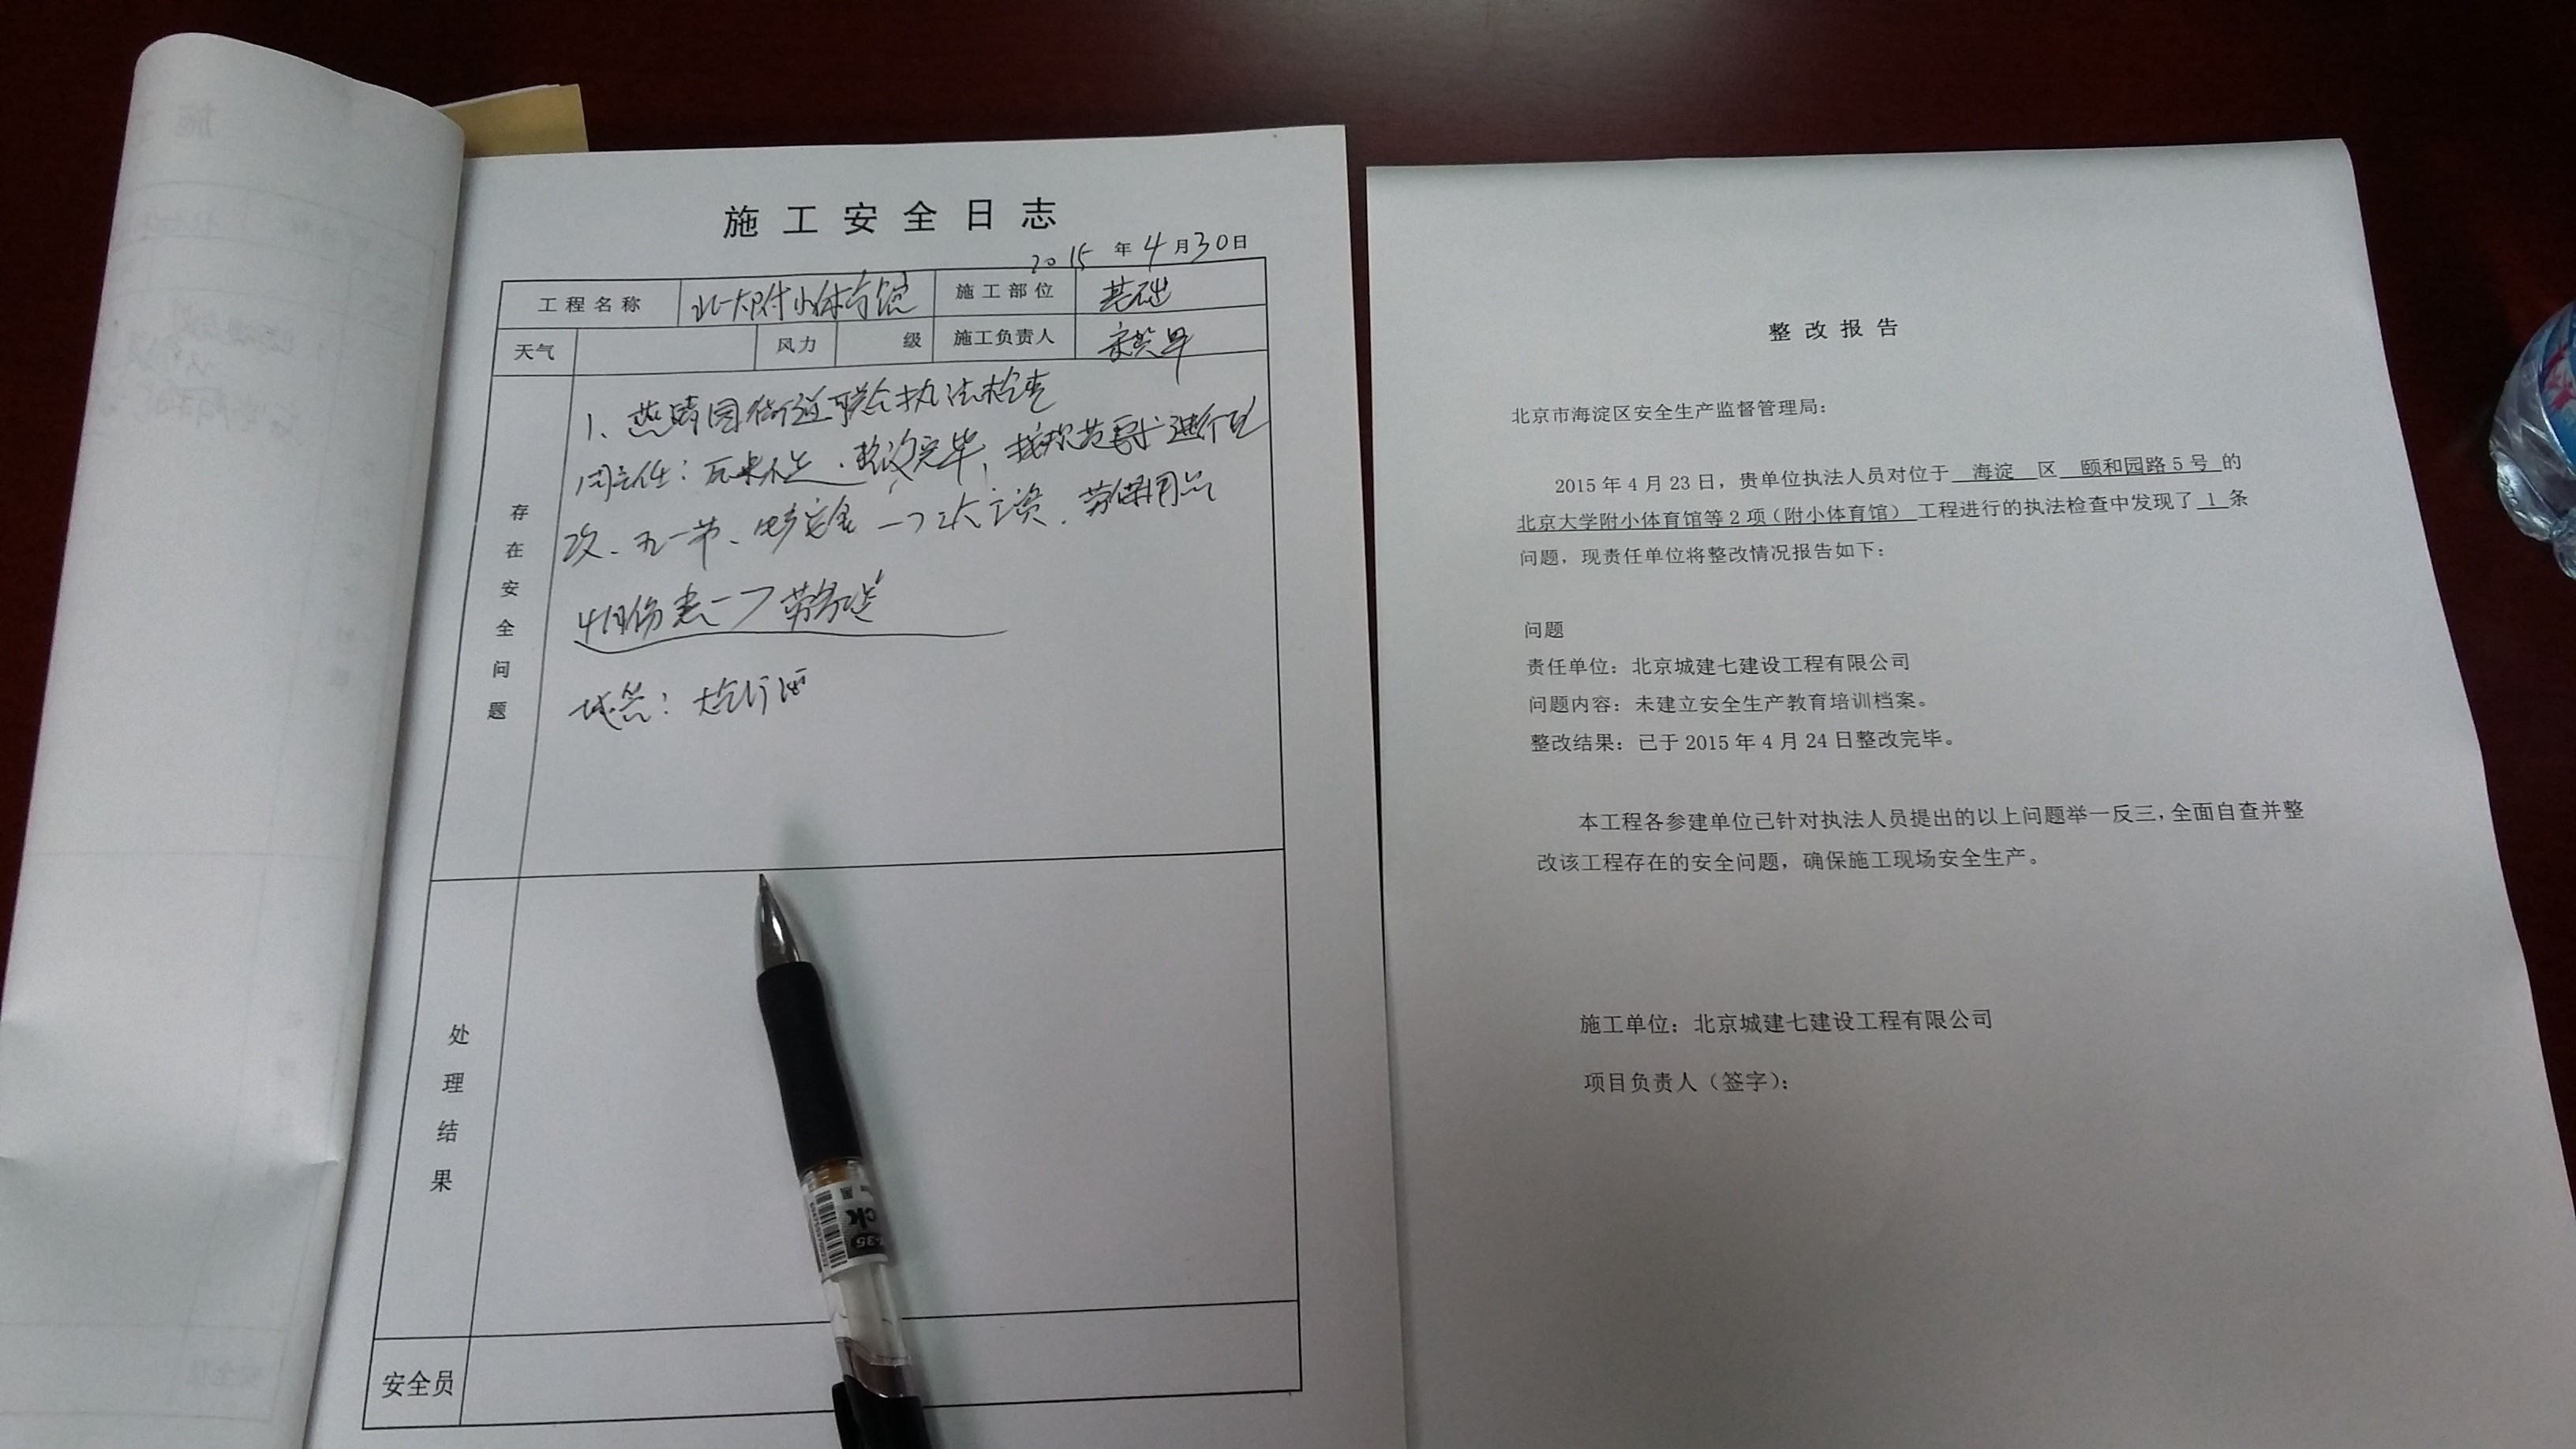 施工安全日志
2015年4月30日
工程名称 北大附小体育馆 施工部位 基础
天气 风力 级 施工负责人
存在安全问题
1、燕园街道联合执法检查
整改完毕,按规范要求进行
改、五一节、
处理结果
安全员
整改报告
北京市海淀区安全生产监督管理局:
2015年4月23日,贵单位执法人员对位于 海淀 区 颐和园路5号 的
北京大学附小体育馆等2项(附小体育馆) 工程进行的执法检查中发现了 1 条
问题,现责任单位将整改情况报告如下:
问题
责任单位:北京城建七建设工程有限公司
问题内容:未建立安全生产教育培训档案。
整改结果:已于2015年4月24日整改完毕。
本工程各参建单位已针对执法人员提出的以上问题举一反三,全面自查并整
改该工程存在的安全问题,确保施工现场安全生产。
施工单位:北京城建七建设工程有限公司
项目负责人(签字):